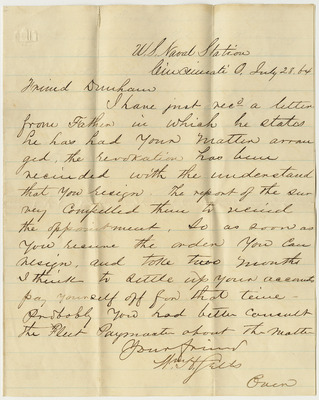 U.S. Naval Station
Cincinnati O. July 28. 64
Friend Dunham
I have just recd a letter
from Father in which he states
he has had your matter arran
ged, the revokation has been
recinded with the understand
that you resign. The report of the sur
vey compelled them to recind
the appointment. So as soon as
you resume the order you can
resign, and take two months
I think to settle up your accounts
pay yourself off for that time -
Probobly you had better consult
the Fleet Paymaster about the matter
Your friend
Wm
Over